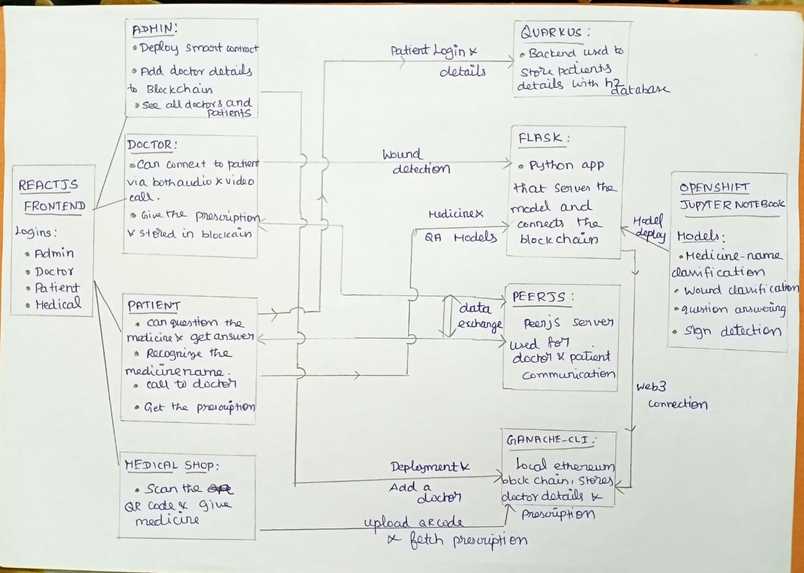 REACTJS
FRONTEND
Logins:
• Admin
• Doctor
• Patient
• Medical
ADMIN:
• Deploy smart contract
• Add doctor details
to Blockchain
• See all doctors and
patients
DOCTOR:
• Can connect to patient
via both audio & video
call.
• Give the prescription
& stored in blockain
PATIENT
• Can question the
medicine & get answer
• Recognize the
medicinename.
• Call to doctor
• Get the prescription
MEDICAL SHOP:
• Scan the
QR code & give
medicine
Patient Login &
details
Wound
detection
Medicine &
QA Models
data
exchange
Deployment &
Add a
doctor
upload QR code
& fetch prescription
QUARKUS:
• Backend used to
store patients
details with h2
database
FLASK:
• Python app
that server the
model and
connects the
blockchain
PEERJS:
Peerjs server
used for
doctor & patient
communication
GANACHE-CLI:
Local ethereum
block chain, stores
doctor details &
prescription
Model
deploy
Web3
connection
OPENSHIFT
JUPYTER NOTEBOOK
Models:
• Medicine-name
classification
• Wound classification
• question answering
• Sign detection